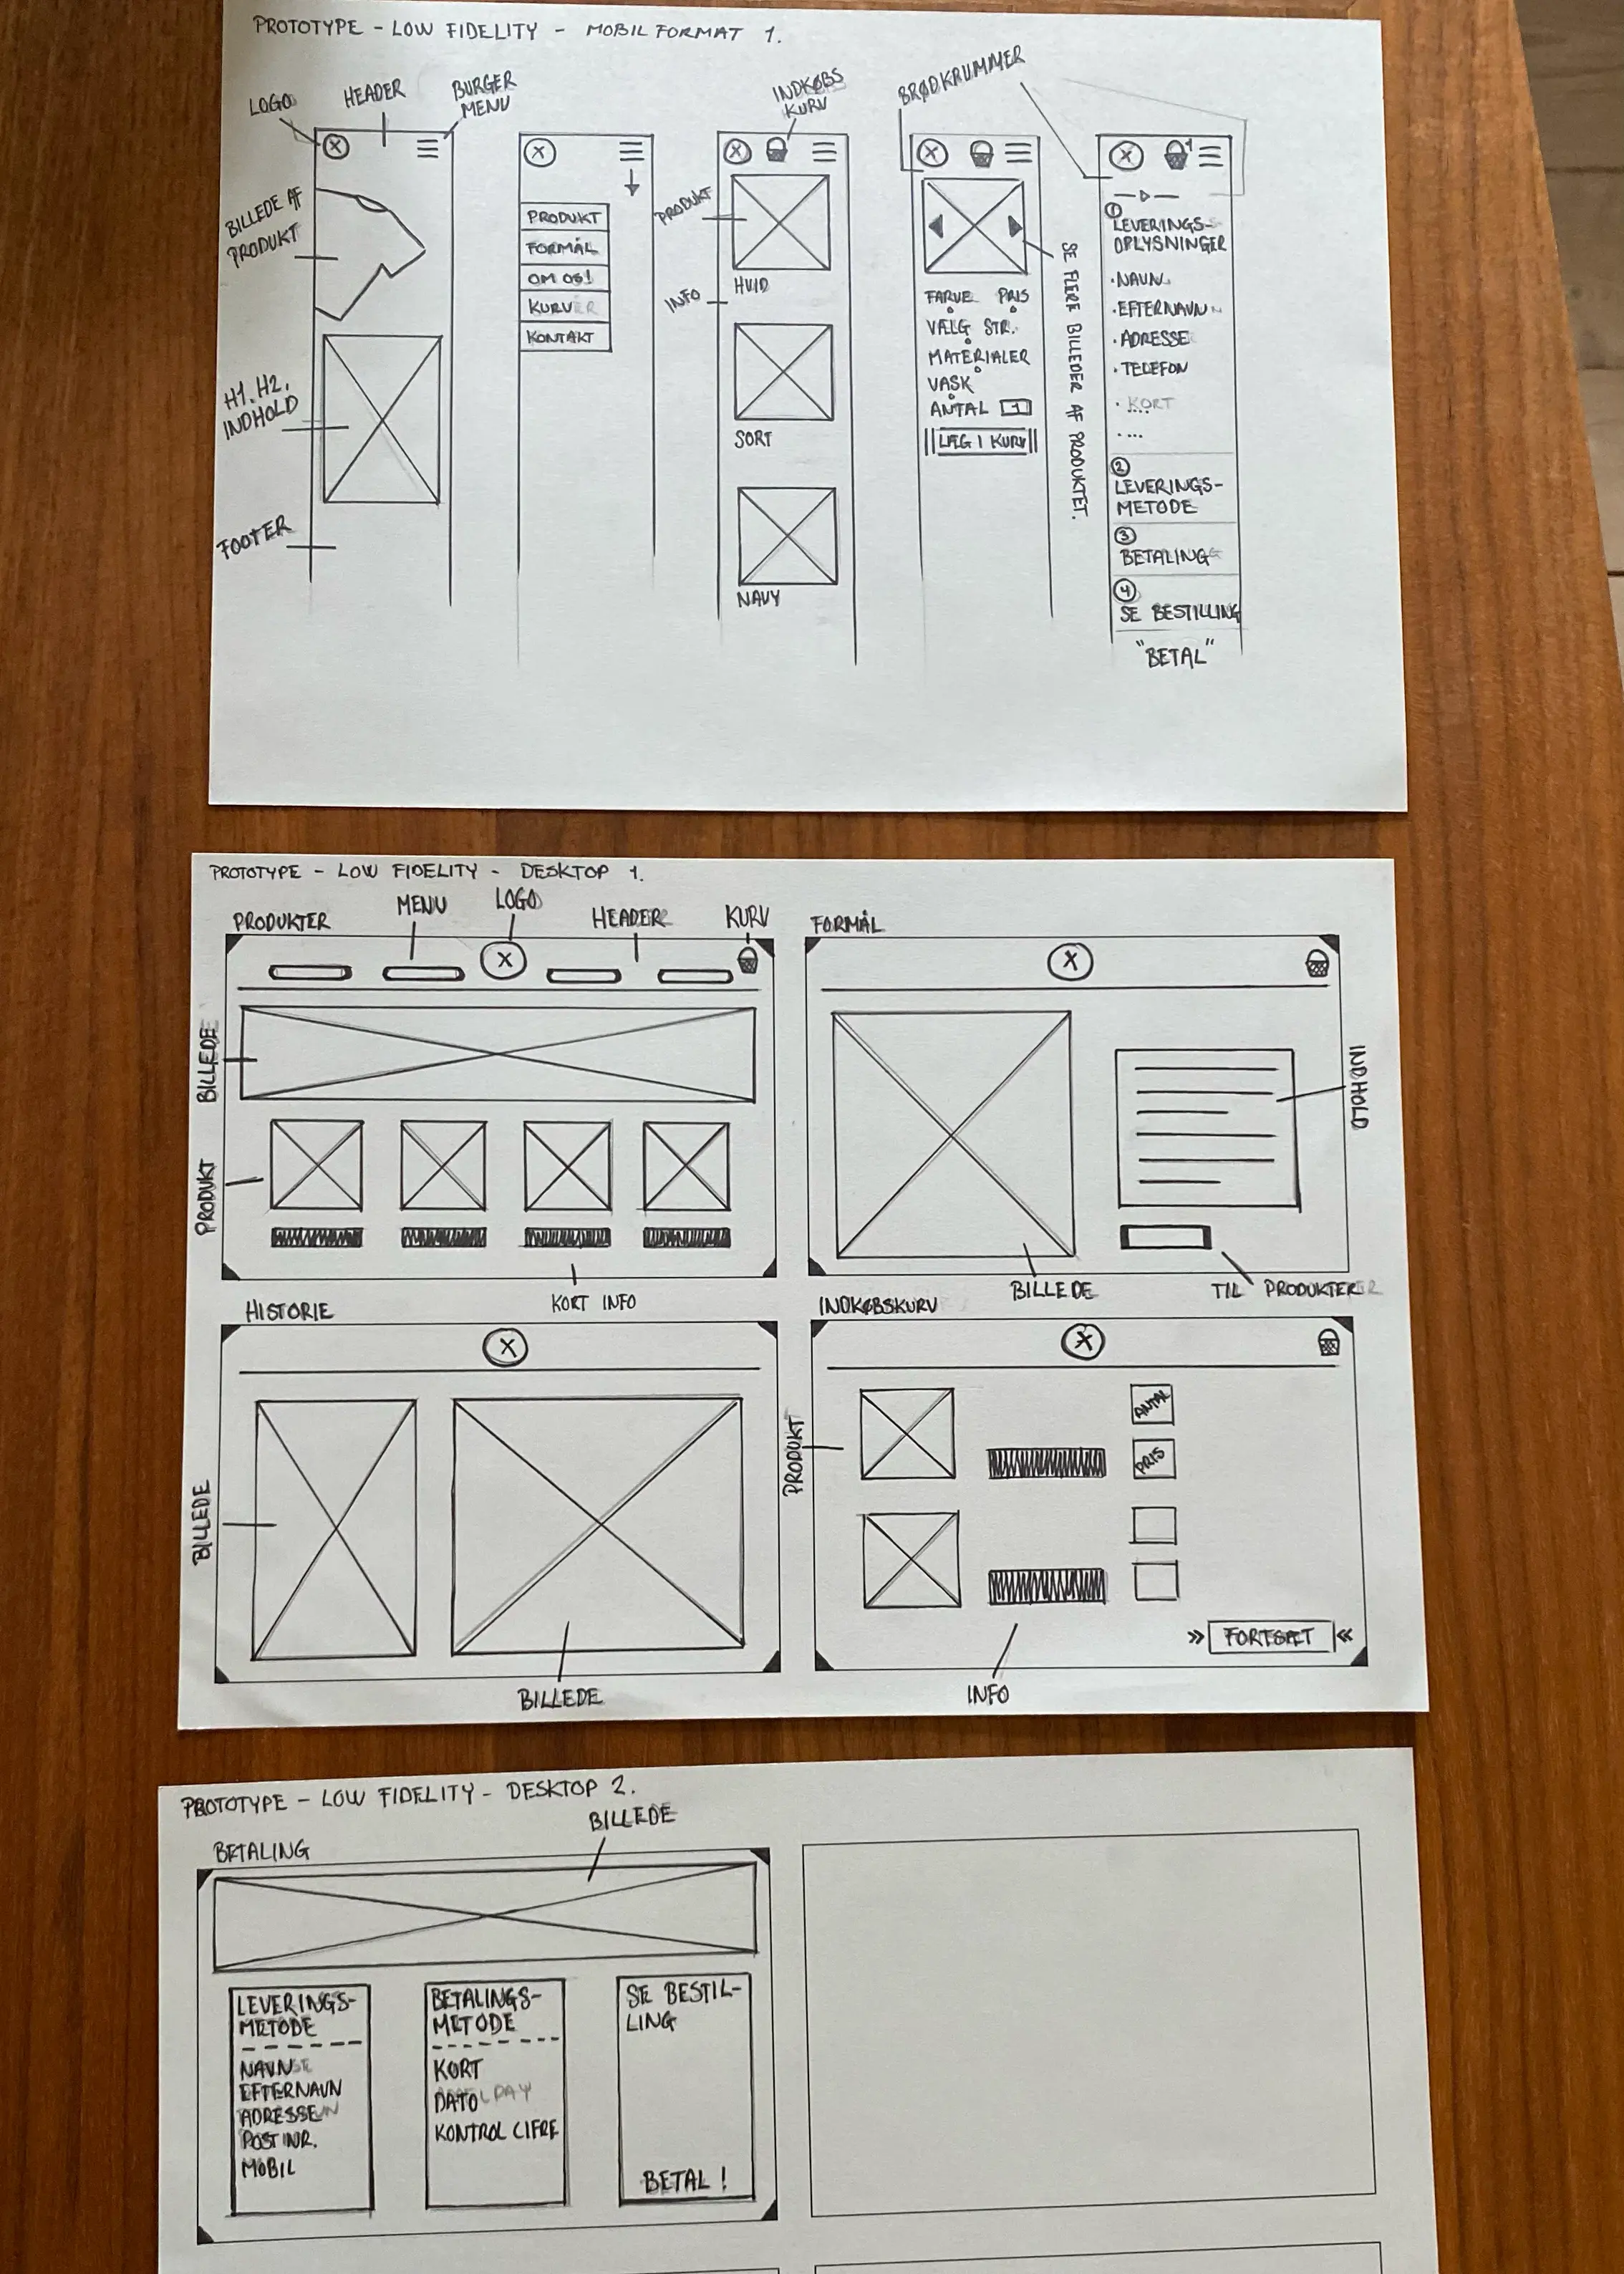 PROTOTYPE - LOW FIDELITY - MOBIL FORMAT 1.
LOGO
HEADER
BURGER
MENU
BILLEDE AF
PRODUKT
H1. H2.
INDHOLD
FOOTER
PRODUKT
FORMÅL
OM OS!
KURV
KONTAKT
INDKØBS
KURV
PRODUKT
INFO
HVID
SORT
NAVY
BRØDKRUMMER
FARVE PRIS
VÆLG STR.
MATERIALER
VASK
ANTAL 1
LÆG I KURV
SE FLERE BILLEDER AF PRODUKTET.
1
①
LEVERINGS-
OPLYSNINGER
· NAVN
· EFTERNAVN
· ADRESSE
· TELEFON
· KORT
· ...
②
LEVERINGS-
METODE
③
BETALING
④
SE BESTILLING
"BETAL"
PROTOTYPE - LOW FIDELITY - DESKTOP 1.
PRODUKTER
MENU
LOGO
HEADER
KURV
BILLEDE
PRODUKT
KORT INFO
FORMÅL
INDHOLD
BILLEDE
TIL PRODUKTER
HISTORIE
BILLEDE
BILLEDE
INDKØBSKURV
PRODUKT
ANTAL
PRIS
INFO
>> FORTSÆT <<
PROTOTYPE - LOW FIDELITY - DESKTOP 2.
BETALING
BILLEDE
LEVERINGS-
METODE
NAVN
EFTERNAVN
ADRESSE
POST NR.
MOBIL
BETALINGS-
METODE
KORT
DATO
KONTROL CIFRE
SE BESTIL-
LING
BETAL !